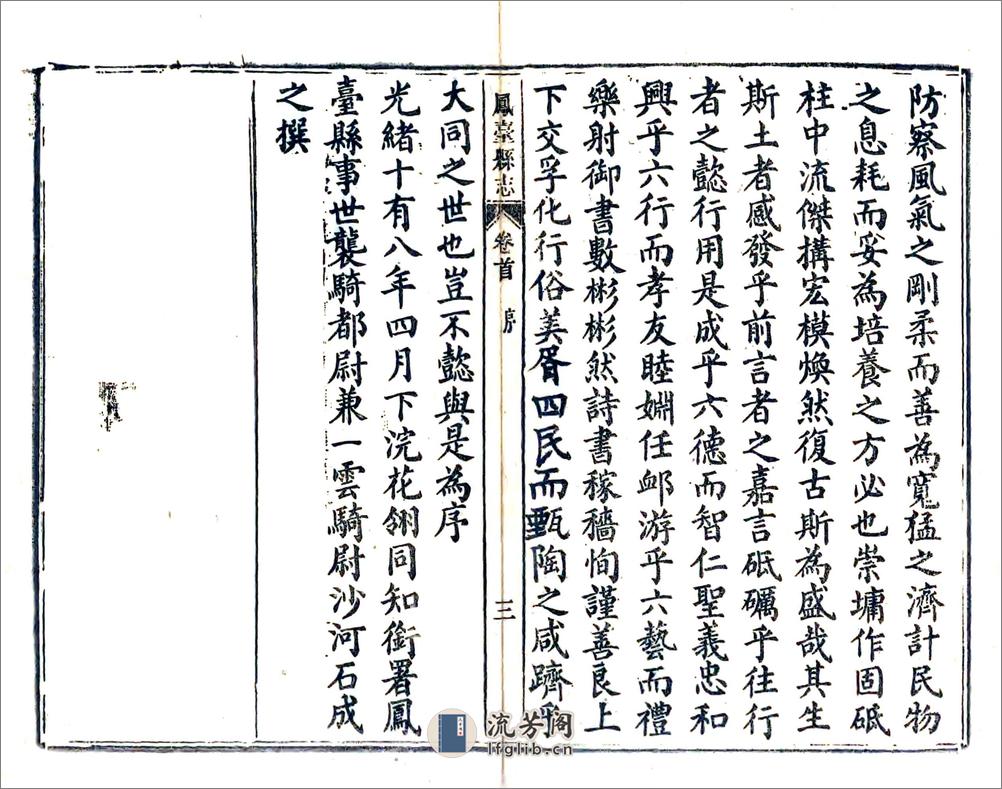 防察風氣之剛柔而善為寬猛之濟計民物
之息耗而妥為培養之方必也崇墉作固砥
柱中流傑搆宏模煥然復古斯為盛哉其生
斯土者感發乎前言者之嘉言砥礪乎往行
者之懿行用是成乎六德而智仁聖義忠和
興乎六行而孝友睦婣任邺游乎六藝而禮
樂射御書數彬彬然詩書稼穡恂謹善良上
下交孚化行俗美胥四民而甄陶之咸躋乎
鳳臺縣志 卷首 序 三
大同之世也豈不懿與是為序
光緒十有八年四月下浣花翎同知銜署鳳
臺縣事世襲騎都尉兼一雲騎尉沙河石成
之撰
流芳阁
lfglib.cn